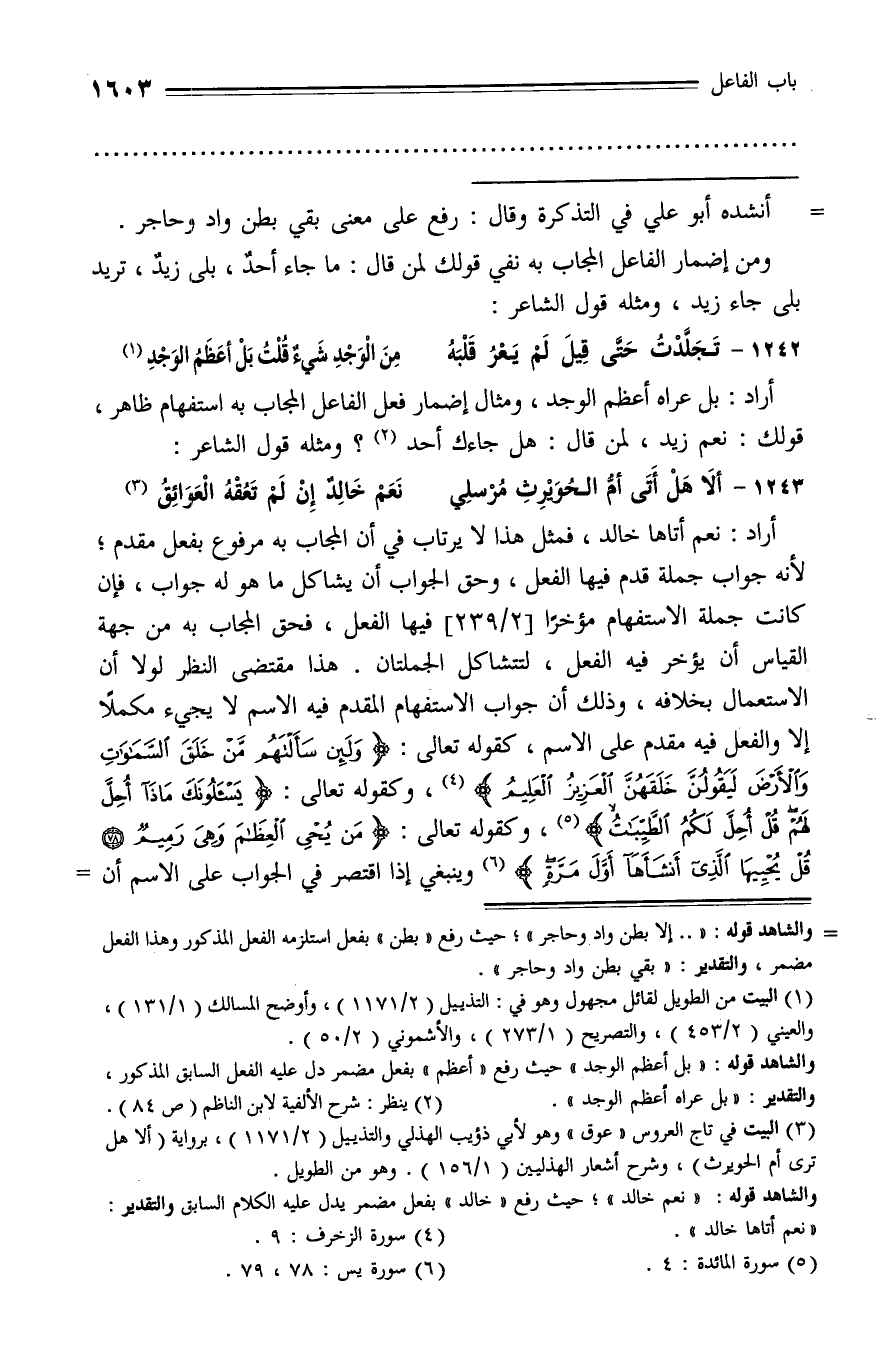 باب الفاعل ١٦٠٣
= أنشده أبو علي في التذكرة وقال : رفع على معنى بقي بطن واد وحاجر .
ومن إضمار الفاعل المجاب به نفي قولك لمن قال : ما جاء أحدٌ ، بلى زيدٌ ، تريد
بلى جاء زيد ، ومثله قول الشاعر :
١٢٤٢ - تَجَلَّدْتُ حَتَّى قِيلَ لَمْ يَعْرُ قَلْبَهُ مِنَ الْوَجْدِ شَيءٌ قُلْتُ بَلْ أعَظَمُ الوَجْدِ (١)
أراد : بل عراه أعظم الوجد ، ومثال إضمار فعل الفاعل المجاب به استفهام ظاهر ،
قولك : نعم زيد ، لمن قال : هل جاءك أحد (٢) ؟ ومثله قول الشاعر :
١٢٤٣ - ألَا هَلْ أَتَى أمُّ الحُوَيْرِثِ مُرْسلِي نَعَمْ خَالِدٌ إِنْ لَمْ تَعُقْهُ الْعَوَائِقُ (٣)
أراد : نعم أتاها خالد ، فمثل هذا لا يرتاب في أن المجاب به مرفوع بفعل مقدم ؛
لأنه جواب جملة قدم فيها الفعل ، وحق الجواب أن يشاكل ما هو له جواب ، فإن
كانت جملة الاستفهام مؤخرًا [٢٣٩/٢] فيها الفعل ، فحق المجاب به من جهة
القياس أن يؤخر فيه الفعل ، لتتشاكل الجملتان . هذا مقتضى النظر لولا أن
الاستعمال بخلافه ، وذلك أن جواب الاستفهام المقدم فيه الاسم لا يجيء مكملًا
إلا والفعل فيه مقدم على الاسم ، كقوله تعالى : ﴿ وَلَئِن سَأَلْتَهُم مَّنْ خَلَقَ ٱلسَّمَٰوَٰتِ
وَٱلْأَرْضَ لَيَقُولُنَّ خَلَقَهُنَّ ٱلْعَزِيزُ ٱلْعَلِيمُ ﴾ (٤) ، وكقوله تعالى : ﴿ يَسْـَٔلُونَكَ مَاذَآ أُحِلَّ
لَهُمْۖ قُلْ أُحِلَّ لَكُمُ ٱلطَّيِّبَٰتُۙ ﴾ (٥) ، وكقوله تعالى : ﴿ مَن يُحْىِ ٱلْعِظَٰمَ وَهِىَ رَمِيمٌ ۝٧٨
قُلْ يُحْيِيهَا ٱلَّذِىٓ أَنشَأَهَآ أَوَّلَ مَرَّةٍۖ ﴾ (٦) وينبغي إذا اقتصر في الجواب على الاسم أن =
= والشاهد قوله : « .. إلا بطن واد وحاجر » ؛ حيث رفع « بطن » بفعل استلزمه الفعل المذكور وهذا الفعل
مضمر ، والتقدير : « بقي بطن واد وحاجر » .
(١) البيت من الطويل لقائل مجهول وهو في : التذييل ( ١١٧١/٢ ) ، وأوضح المسالك ( ١٣١/١ ) ،
والعيني ( ٤٥٣/٢ ) ، والتصريح ( ٢٧٣/١ ) ، والأشموني ( ٥٠/٢ ) .
والشاهد قوله : « بل أعظم الوجد » حيث رفع « أعظم » بفعل مضمر دل عليه الفعل السابق المذكور ،
والتقدير : « بل عراه أعظم الوجد » . (٢) ينظر : شرح الألفية لابن الناظم ( ص ٨٤ ) .
(٣) البيت في تاج العروس « عوق » وهو لأبي ذؤيب الهذلي والتذييل ( ١١٧١/٢ ) ، برواية ( ألا هل
ترى أم الحويرث ) ، وشرح أشعار الهذليين ( ١٥٦/١ ) . وهو من الطويل .
والشاهد قوله : « نعم خالد » ؛ حيث رفع « خالد » بفعل مضمر يدل عليه الكلام السابق والتقدير :
« نعم أتاها خالد » . (٤) سورة الزخرف : ٩ .
(٥) سورة المائدة : ٤ . (٦) سورة يس : ٧٨ ، ٧٩ .